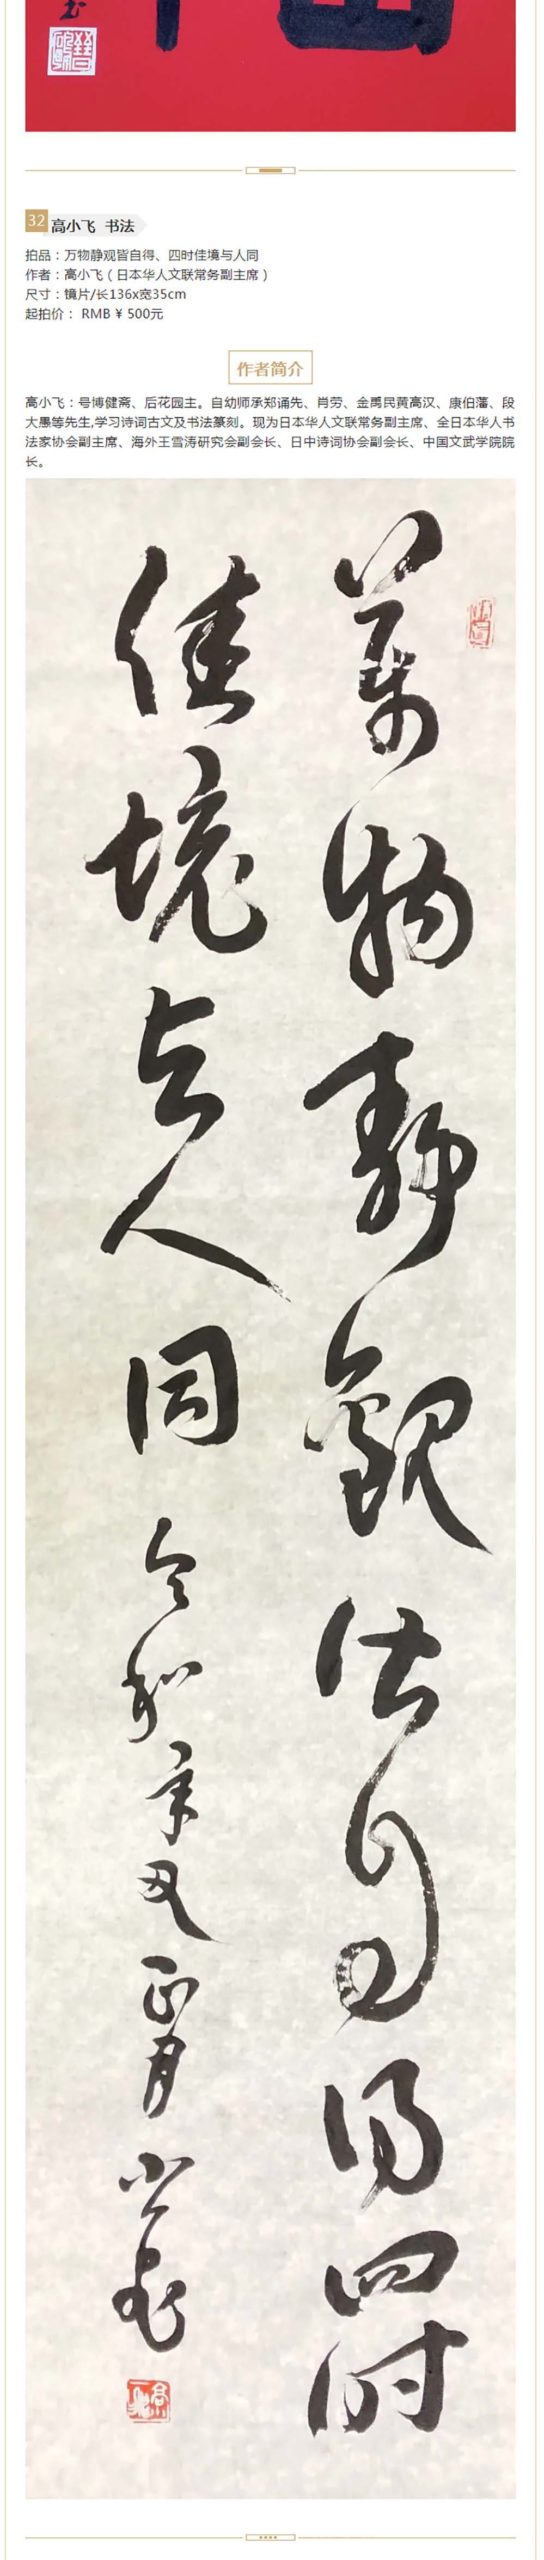 32
高小飞 书法
拍品：万物静观皆自得、四时佳境与人同
作者：高小飞（日本华人文联常务副主席）
尺寸：镜片/长136x宽35cm
起拍价： RMB ¥ 500元
作者简介
高小飞：号博健斋、后花园主。自幼师承郑诵先、肖劳、金禹民黄高汉、康伯藩、段
大愚等先生,学习诗词古文及书法篆刻。现为日本华人文联常务副主席、全日本华人书
法家协会副主席、海外王雪涛研究会副会长、日中诗词协会副会长、中国文武学院院
长。
萬物静觀皆自得四时
佳境与人同 令和年正月 小飞